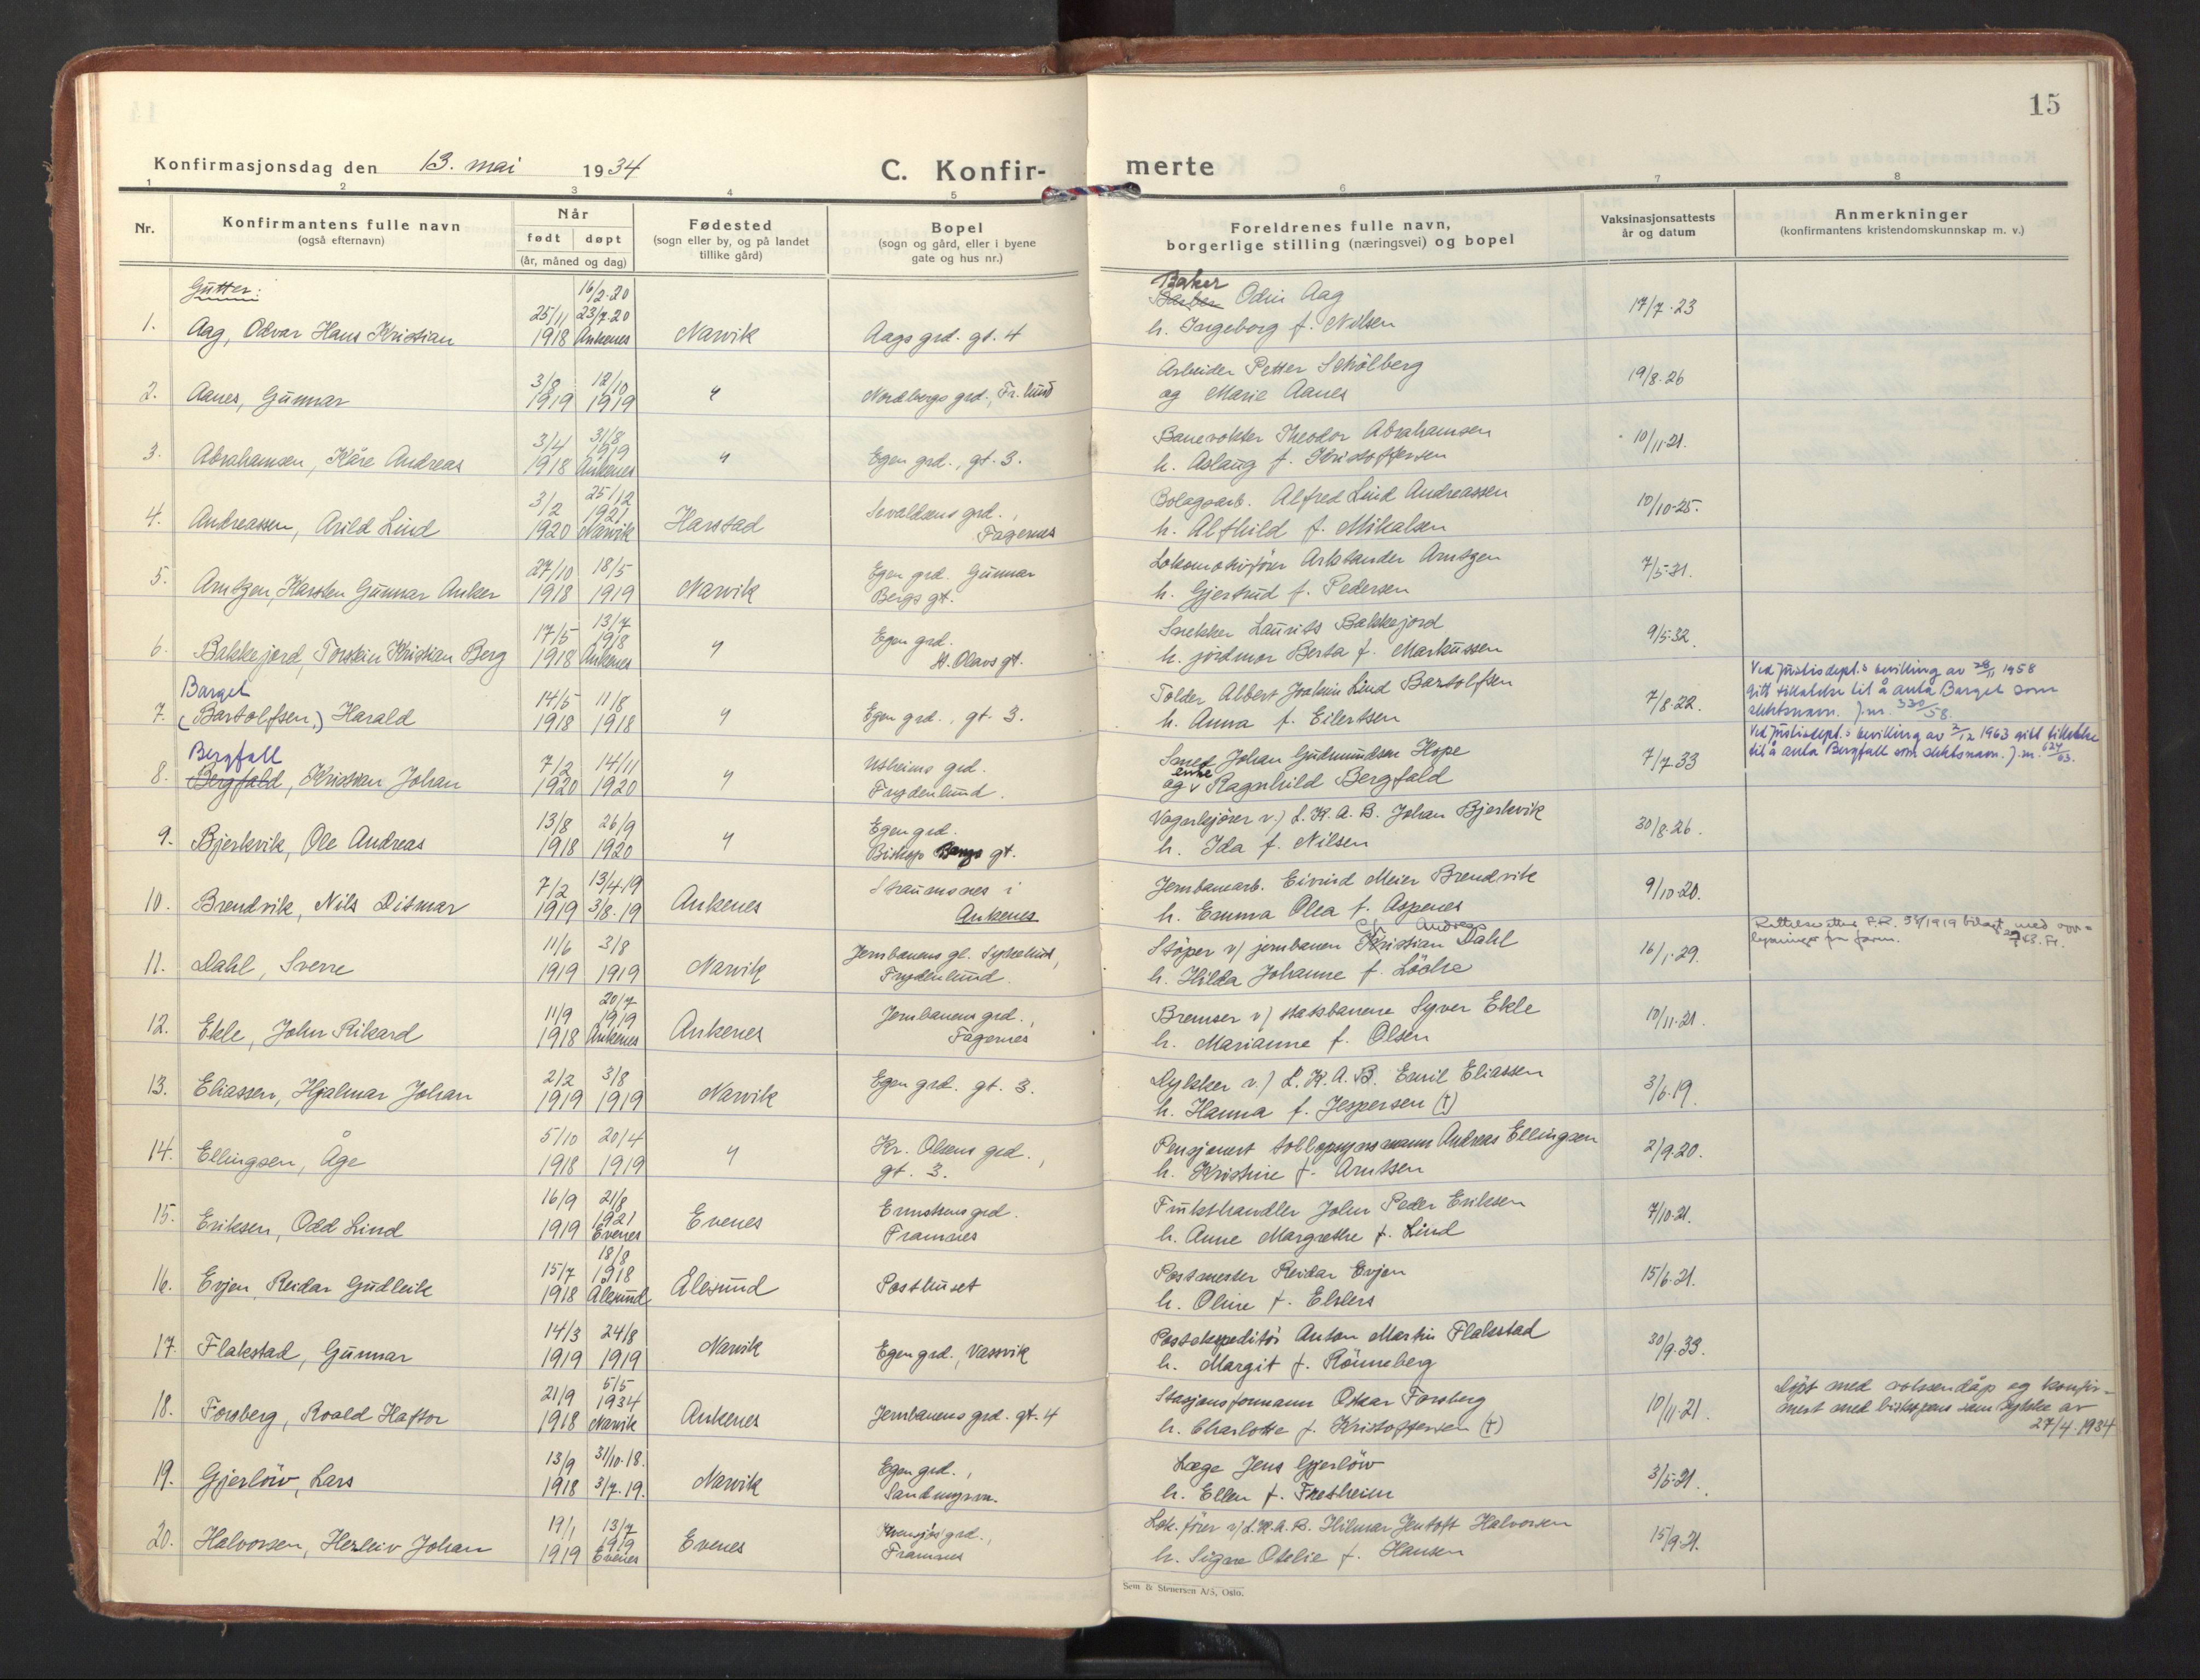 15
Konfirmasjonsdag den 13. mai 1934
C. Konfir-
merte
1 2 3 4 5 6 7 8
Nr.
Konfirmantens fulle navn
(også efternavn)
Når
født døpt
(år, måned og dag)
Fødested
(sogn eller by, og på landet
tillike gård)
Bopel
(sogn og gård, eller i byene
gate og hus nr.)
Foreldrenes fulle navn,
borgerlige stilling (næringsvei) og bopel
Vaksinasjonsattests
år og datum
Anmerkninger
(konfirmantens kristendomskunnskap m. v.)
Gutter:
16/2-20 Baker
25/11 23/7-20 Odin Aag 17/7-23
1. Aag, Odvar Hans Kristian 1918 Ankenes Narvik Aags grd. gt. 4 h. Ingeborg f. Nilsen
3/8 12/10 Arbeider Petter Schölberg 19/8-26
2. Aanes, Gunnar 1919 1919 " Nordbergs grd., Fr.lund og Marie Aanes
3/4 31/8 1919 Banevokter Theodor Abrahamsen 10/11-21.
3. Abrahamsen, Kåre Andreas 1918 Ankenes " Egen grd., gt. 3. h. Aslaug f. Kristoffersen
3/2 25/12 1921 Sivaldsens grd., Bolagsarb. Alfred Lind Andreassen 10/10-25.
4. Andreassen, Arild Lind 1920 Narvik Harstad Fagernes h. Alfhild f. Mikalsen
27/10 18/5 Egen grd. Gunnar Lokomotivförer Arntzen 7/5-31.
5. Arntzen, Karsten Gunnar Anker 1918 1919 Narvik Bergs gt. h. Gjertrud f. Pedersen
17/5 13/7 1918 Egen grd. Snekker Laurits Bakkejord 9/5-32.
6. Bakkejord, Torstein Kristian Berg 1918 Ankenes " St. Olavs gt. h. jordmor Berta f. Markussen
Barget 14/5 11/8 Tolder Albert Joakim Lind Bartolfsen 7/8-22. Ved justisdept.s bevilling av 28/11 1958
gitt tillatelse til å anta Barget som
slektsnavn. J.nr. 330/58.
7. (Bartolfsen,) Harald 1918 1918 " Egen grd., gt. 3. h. Anna f. Eilertsen
Bergfall 7/2 14/11 Usheims grd. Smed Johan Gudmundsen Hope 7/7-33 Ved justisdept.s bevilling av 2/12 1963 gitt tillatelse
til å anta Bergfall som slektsnavn. J.nr. 624/63.
8. Bergfald, Kristian Johan 1920 1920 " Frydenlund. og enke Ragnhild Bergfald
13/8 26/9 Egen grd. Vognkjører v/ L.K.A.B. Johan Bjerkvik 30/8-26.
9. Bjerkvik, Ole Andreas 1918 1920 " Biskop Bangs gt. h. Ida f. Nilsen
7/2 13/4-19 Straumsnes i Jernbanearb. Eivind Meier Brendvik 9/10-20.
10. Brendvik, Nils Ditmar 1919 3/8-19 Ankenes Ankenes h. Emma Olea f. Aspenes
11/6 3/8 Jernbanens gl. Sykehus, Støper v/ jernbanen Kristian Andreas Dahl 16/1-29.
11. Dahl, Sverre 1919 1919 Narvik Frydenlund. h. Hilda Johanne f. Löcke
11/9 20/7 1919 Jernbanens grd., Bremser v/ statsbanene Syver Ekle 10/11-21.
12. Ekle, John Rikard 1918 Ankenes Ankenes Fagernes h. Marianne f. Olsen
2/2 3/8 Dykker v/ L.K.A.B. Emil Eliassen 3/6-19.
13. Eliassen, Hjalmar Johan 1919 1919 Narvik Egen grd. gt. 3. h. Hanna f. Jespersen (†)
5/10 20/4 Kr. Olsens grd., Pensjonert tollopsynsmann Andreas Ellingsen 2/9-20.
14. Ellingsen, Åge 1918 1919 " gt. 3. h. Kristine f. Arntsen
16/9 21/8 1921 grd. Frukthandler John Peder Eriksen 7/10-21.
15. Eriksen, Odd Lind 1919 Evenes Evenes Framnes h. Anne Margrethe f. Lind
15/7 18/8 1918 Postmester Reidar Evjen 15/6-21.
16. Evjen, Reidar Gudleik 1918 Ålesund Ålesund Posthuset h. Oline f. Ehlers
14/3 24/8 Postekspeditör Anton Martin Flakstad 30/9-33.
17. Flakstad, Gunnar 1919 1919 Narvik Egen grd., Vassvik h. Margit f. Rönneberg
21/9 5/5 1934 Stasjonsformann Oskar Forsberg 10/11-21. Døpt med voksendåp og konfir-
mert med biskopens samtykke av
27/4-1934
18. Forsberg, Roald Haftor 1918 Narvik Ankenes Jernbanens grd. gt. 4 h. Charlotte f. Kristoffersen (†)
13/9 31/10-18. Egen grd., Læge Jens Gjerlöw 3/5-21.
19. Gjerlöw, Lars 1918 3/7-19. Narvik Sandmyrvn. h. Ellen f. Fretheim
19/1 13/7 1919 grd., Lok.förer v/ L.K.A.B. Hilmar Jentoft Halvorsen 15/9-21.
20. Halvorsen, Herleiv Johan 1919 Evenes Evenes Framnes h. Signe Otelie f. Hansen
Sem & Stenersen A/S, Oslo.